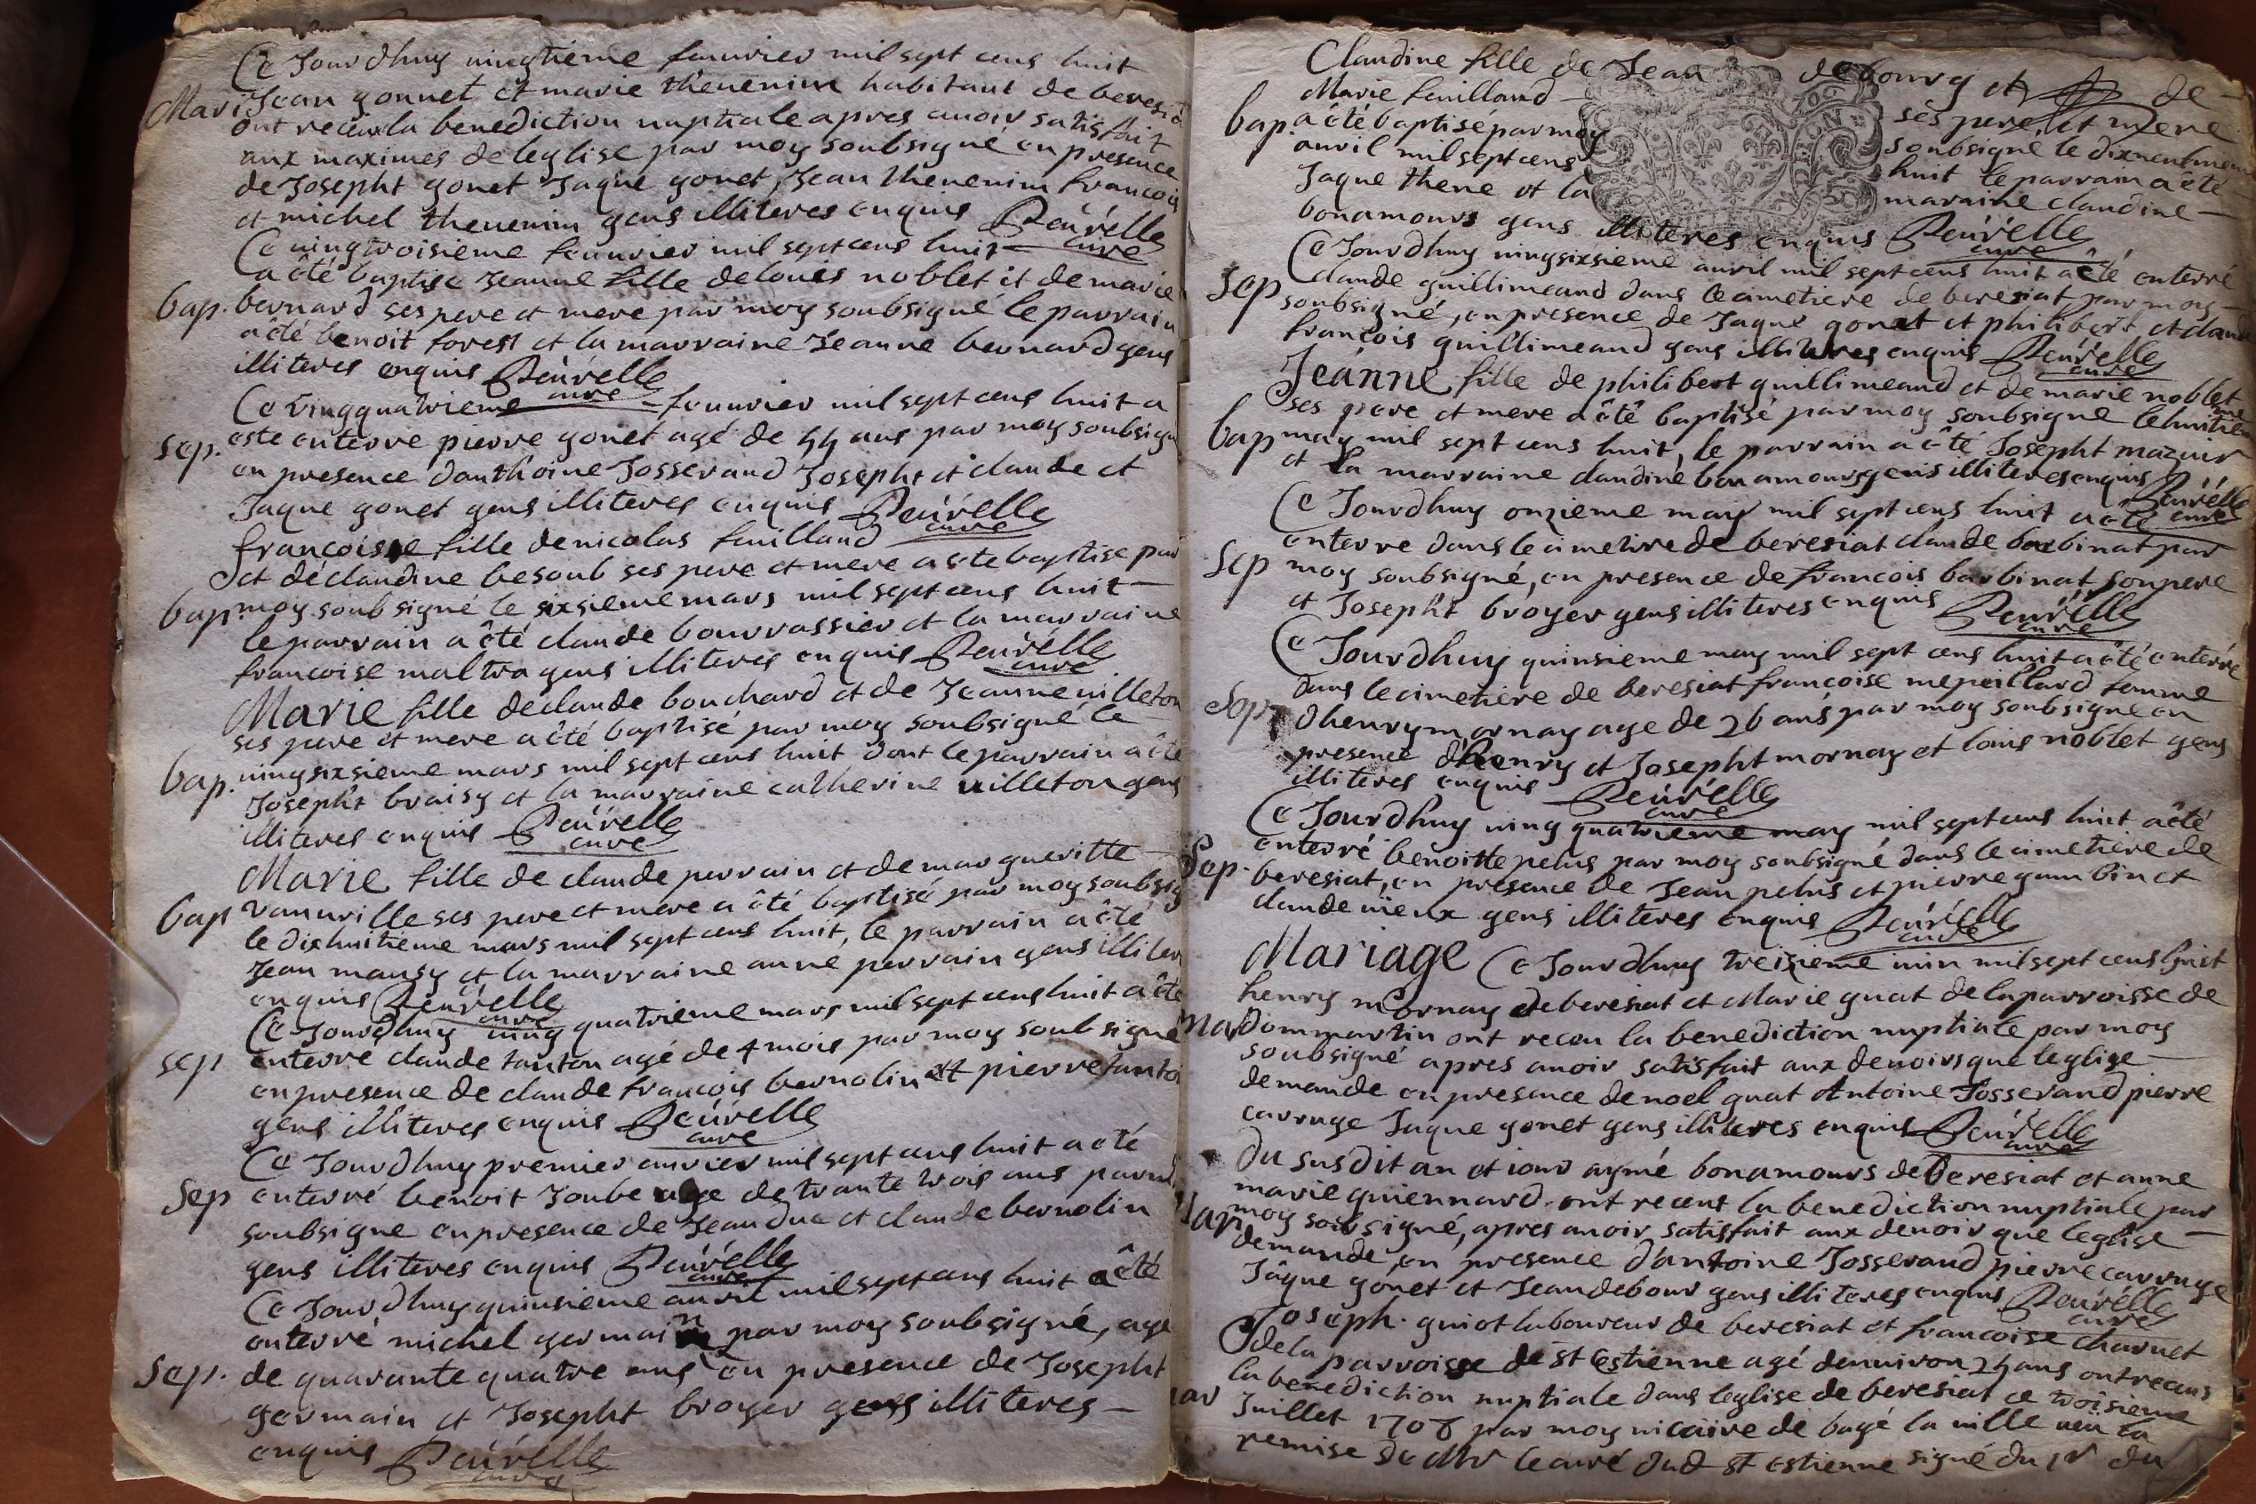 Ce Jourdhuy vingtieme feuvrier mil sept cens huit
Mari Jean gonnet et marie thevenin habitant de beresia
ont receu la benediction nuptiale apres avoir satisfait
aux maximes de leglise par moy soubsigné en presence
de Josepht gonet Jaque gonet, Jean thevenim francois
et michel thevenim gens illiteres enquis
curé
Ce vingtroisieme feuvrier mil sept cens huit
a êté baptise Jeanne fille de louis noblet et de marie
bap. bernard ses pere et mere par moy soubsigné le parrain
a êté benoit forest et la marraine Jeanne bernard gens
illiteres enquis
curé
Ce vingquatrieme feuvrier mil sept cens huit a
sep. este enterre pierre gonet agé de 44 ans par moy soubsigné
en presence danthoine Josserand Josepht et claude et
Jaque gonet gens illiteres enquis
curé
francoisse fille de nicolas feuilland
et de claudine besoub ses pere et mere a este baptise par
bap. moy soubsigné le sixsieme mars mil sept cens huit
le parrain a êté claude bourrassier et la marraine
francoise maltra gens illiteres enquis
curé
Marie fille de claude bouchard et de Jeanne villeton
ses pere et mere a êté baptisé par moy soubsigné le
bap. vingsixsieme mars mil sept cens huit dont le parrain a êté
Josepht braisy et la marraine catherine villeton gens
illiteres enquis
curé
Marie fille de claude perrain et de margueritte
bap vanuville ses pere et mere a êté baptisé par moy soubsig
le dixhuitieme mars mil sept cens huit, le parrain a êté
Jean mangy et la marraine anne perrain gens illiter
enquis
curé
Ce Jourdhuy ving quatrieme mars mil sept cens huit a êté
sep enterre claude tanton agé de 4 mois par moy soubsigné
en presence de claude francois bernolin et pierre tanto
gens illiteres enquis
curé
Ce Jourdhuy premier avrier mil sept cens huit a êté
Sep enterré benoit Joube age de trante trois ans par
soubsigne en presence de Jean duc et claude bernolin
gens illiteres enquis
curé
Ce Jourdhuy quinsieme avril mil sept cens huit a êté
enterré michel germain par moy soubsigné, age
Sep. de quarante quatre ans en presence de Josepht
germain et Josepht broyer gens illiteres
enquis
curé
Claudine fille de Jean debourg et de
Marie feuilland ses pere et mere
bap. a êté baptisé par moy soubsigné le dixneufvieme
avril mil sept cens huit le parrain a êté
Jaque there et la maraine claudine
bonamours gens illiteres enquis
curé
Ce Jourdhuy vingsixsieme avril mil sept cens huit a êté enterré
Sep claude guillimeaud dans le cimetiere de beresiat par moy
soubsigné, en presence de Jaque gonet et philibert et claude
francois guillimeaud gens illiteres enquis
curé
Jeanne fille de philibert guillimeaud et de marie noblet
ses pere et mere a êté baptisé par moy soubsigne le huitieme
bap may mil sept cens huit, le parrain a êté Josepht mazuir
et la marraine claudine bonamours gens illiteres enquis
curé
Ce Jourdhuy onzieme may mil sept cens huit a êté
enterre dans le cimetire de beresiat claude barbinat par
Sep moy soubsigné, en presence de francois barbinat son pere
et Josepht broyer gens illiteres enquis
curé
Ce Jourdhuy quinsieme may mil sept cens huit a êté enterré
dans le cimetiere de beresiat francoise mepillard femme
Sep. dhenry mornay age de 26 ans par moy soubsigne en
presence dhenry et Josepht mornay et louis noblet gens
illiteres enquis
curé
Ce Jourdhuy ving quatrieme may mil sept cens huit a êté
enterré benoitte pelus par moy soubsigné dans le cimetiere de
Sep. beresiat, en presence de Jean pelus et pierre gambin et
claude vieux gens illiteres enquis
curé
Mariage Ce Jourdhuy treizieme iuin mil sept cens huit
henry mornay de beresiat et Marie guat de la parroisse de
mar dommartin ont receu la benediction nuptiale par moy
soubsigné apres avoir satisfait aux devoirs que leglise
demande en presence de noel guat Antoine Josserand pierre
carruge Jaque gonet gens illiteres enquis
curé
du susdit an et iour aymé bonamours de beresiat et anne
marie guiennard ont receut la benediction nuptiale par
Mar moy soubsigné, apres avoir satisfait aux devoir que leglise
demande, en presence dantoine Josserand pierre carruge
Jaque gonet et Jean debour gens illiteres enquis
curé
Joseph guiot laboureur de beresiat et francoise charnet
de la parroisse de st estienne agé denviron 24 ans ont receus
mar la benediction nuptiale dans leglise de beresiat ce troisieme
Juillet 1708 par moy vicaire de bagé la ville veu la
remise de Mr le curé dud st estienne signé du 1r du